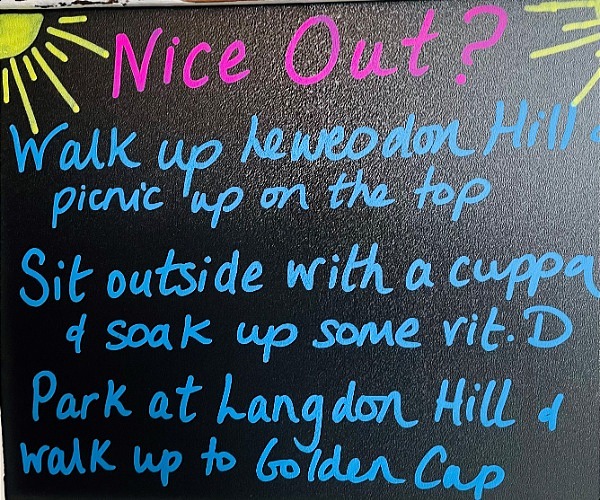 Nice Out?
Walk up Lewesdon Hill &
picnic up on the top
Sit outside with a cuppa
& soak up some vit. D
Park at Langdon Hill &
walk up to Golden Cap